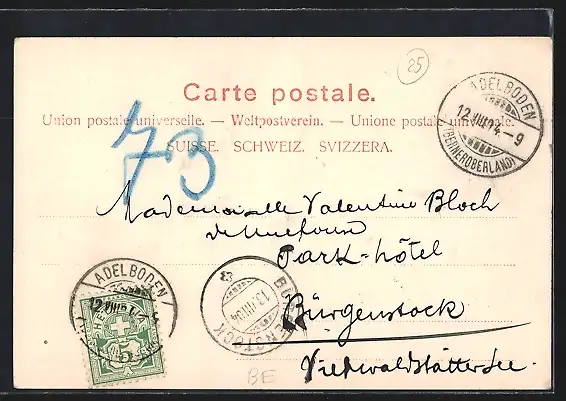 25
Carte postale.
Union postale universelle. — Weltpostverein. — Unione postale universale.
SUISSE. SCHWEIZ. SVIZZERA.
73
ADELBODEN
12.VIII.04.-9
(BERNEROBERLAND)
Mademoiselle Valentine Bloch
Park-hôtel
Bürgenstock
Vierwaldstättersee.
ADELBODEN
12.VIII
BÜRGENSTOCK
13.VIII.04
BE